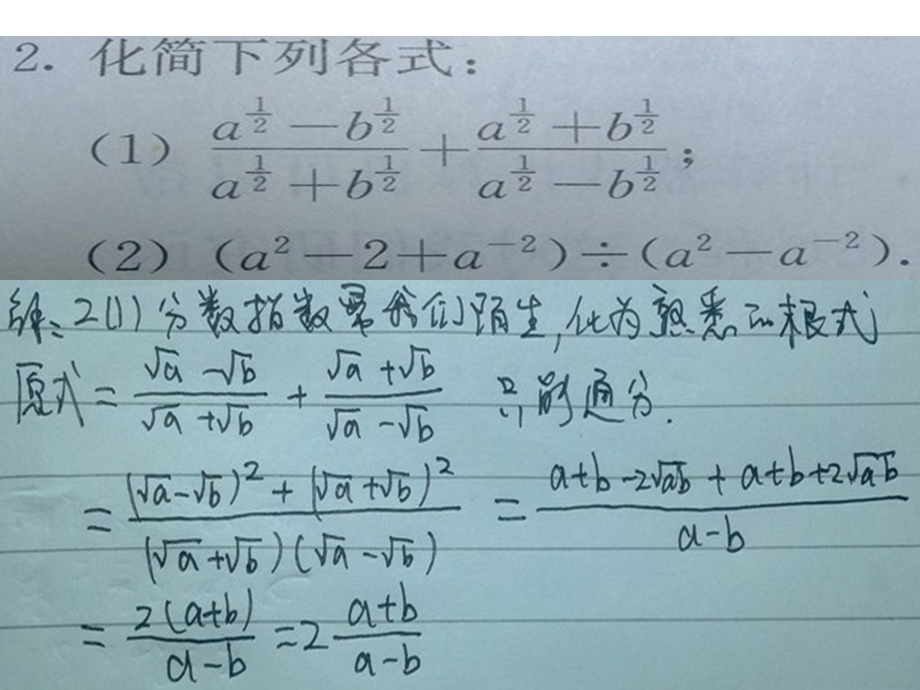 2. 化简下列各式：
(1) \frac{a^{\frac{1}{2}}-b^{\frac{1}{2}}}{a^{\frac{1}{2}}+b^{\frac{1}{2}}}+\frac{a^{\frac{1}{2}}+b^{\frac{1}{2}}}{a^{\frac{1}{2}}-b^{\frac{1}{2}}}；
(2) (a^{2}-2+a^{-2})÷(a^{2}-a^{-2}).
解：2(1)分数指数幂我们陌生,化为熟悉的根式
原式=\frac{\sqrt{a}-\sqrt{b}}{\sqrt{a}+\sqrt{b}}+\frac{\sqrt{a}+\sqrt{b}}{\sqrt{a}-\sqrt{b}} 只能通分.
=\frac{(\sqrt{a}-\sqrt{b})^{2}+(\sqrt{a}+\sqrt{b})^{2}}{(\sqrt{a}+\sqrt{b})(\sqrt{a}-\sqrt{b})}=\frac{a+b-2\sqrt{ab}+a+b+2\sqrt{ab}}{a-b}
=\frac{2(a+b)}{a-b}=2\frac{a+b}{a-b}